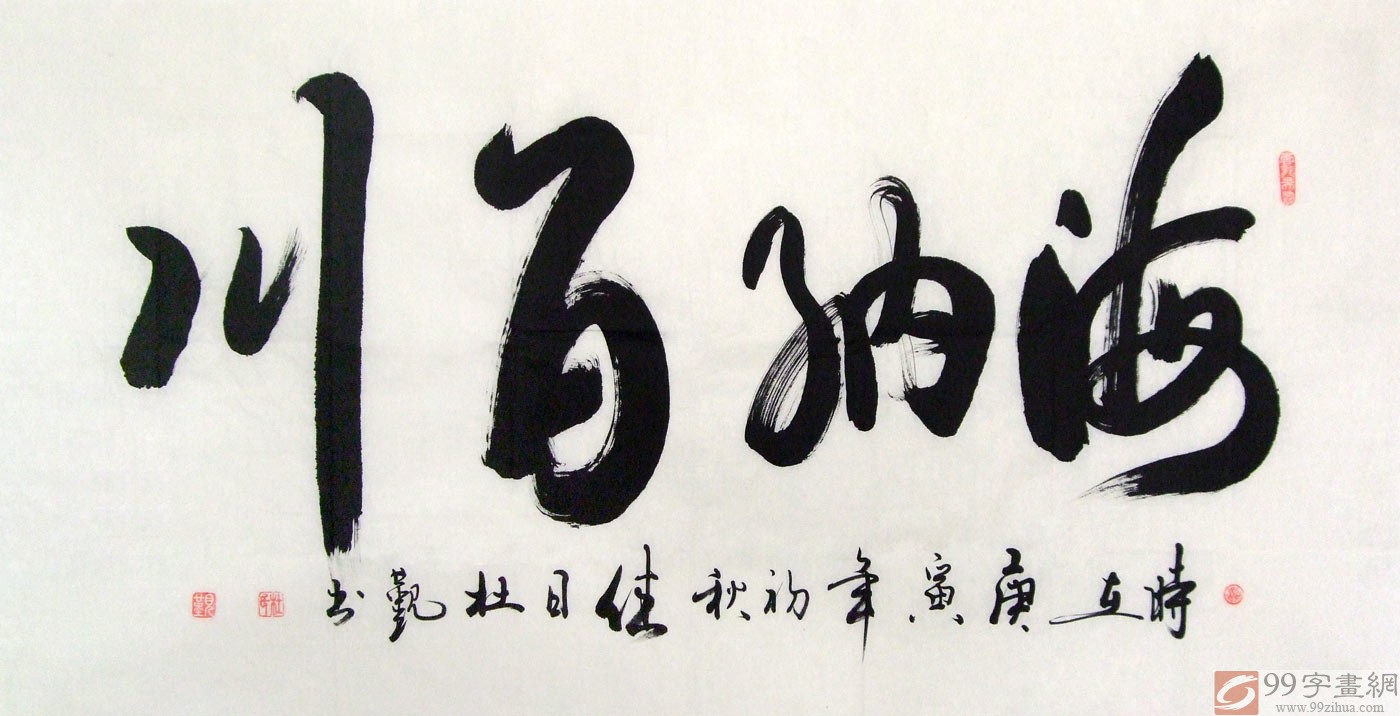 海纳百川
時在庚寅年初秋佳日杜觀书
99字畫網
www.99zihua.com